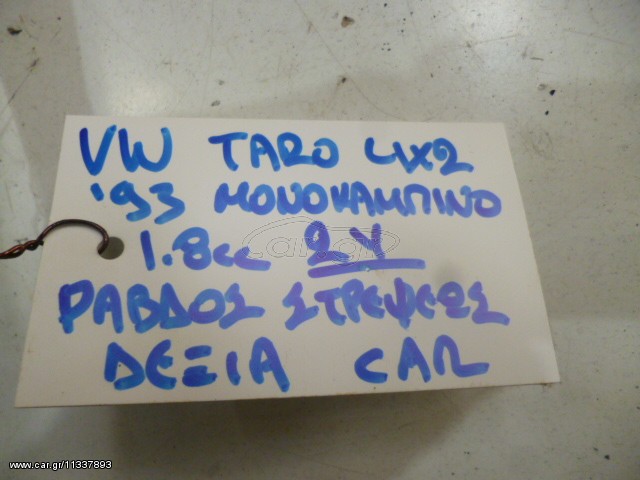 VW TARO 4X2
'93 ΜΟΝΟΚΑΜΠΙΝΟ
1.8cc 2Y
ΡΑΒΔΟΣ ΣΤΡΕΨΕΩΣ
ΔΕΞΙΑ CAR
car.gr
www.car.gr/11337893